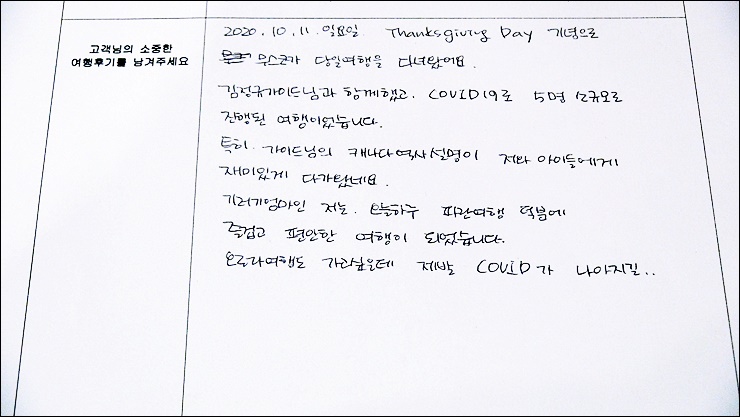 고객님의 소중한
여행후기를 남겨주세요
2020. 10. 11. 일요일 Thanksgiving Day 기념으로
무스코카 당일여행을 다녀왔어요.
김정규가이드님과 함께했고. COVID19로 5명 소규모로
진행된 여행이었습니다.
특히. 가이드님의 캐나다역사설명이 저와 아이들에게
재미있게 다가왔네요.
기러기엄마인 저는. 오늘하루 파란여행 덕분에
즐겁고 편안한 여행이 되었습니다.
오로라여행도 가고싶은데 제발 COVID가 나아지길..